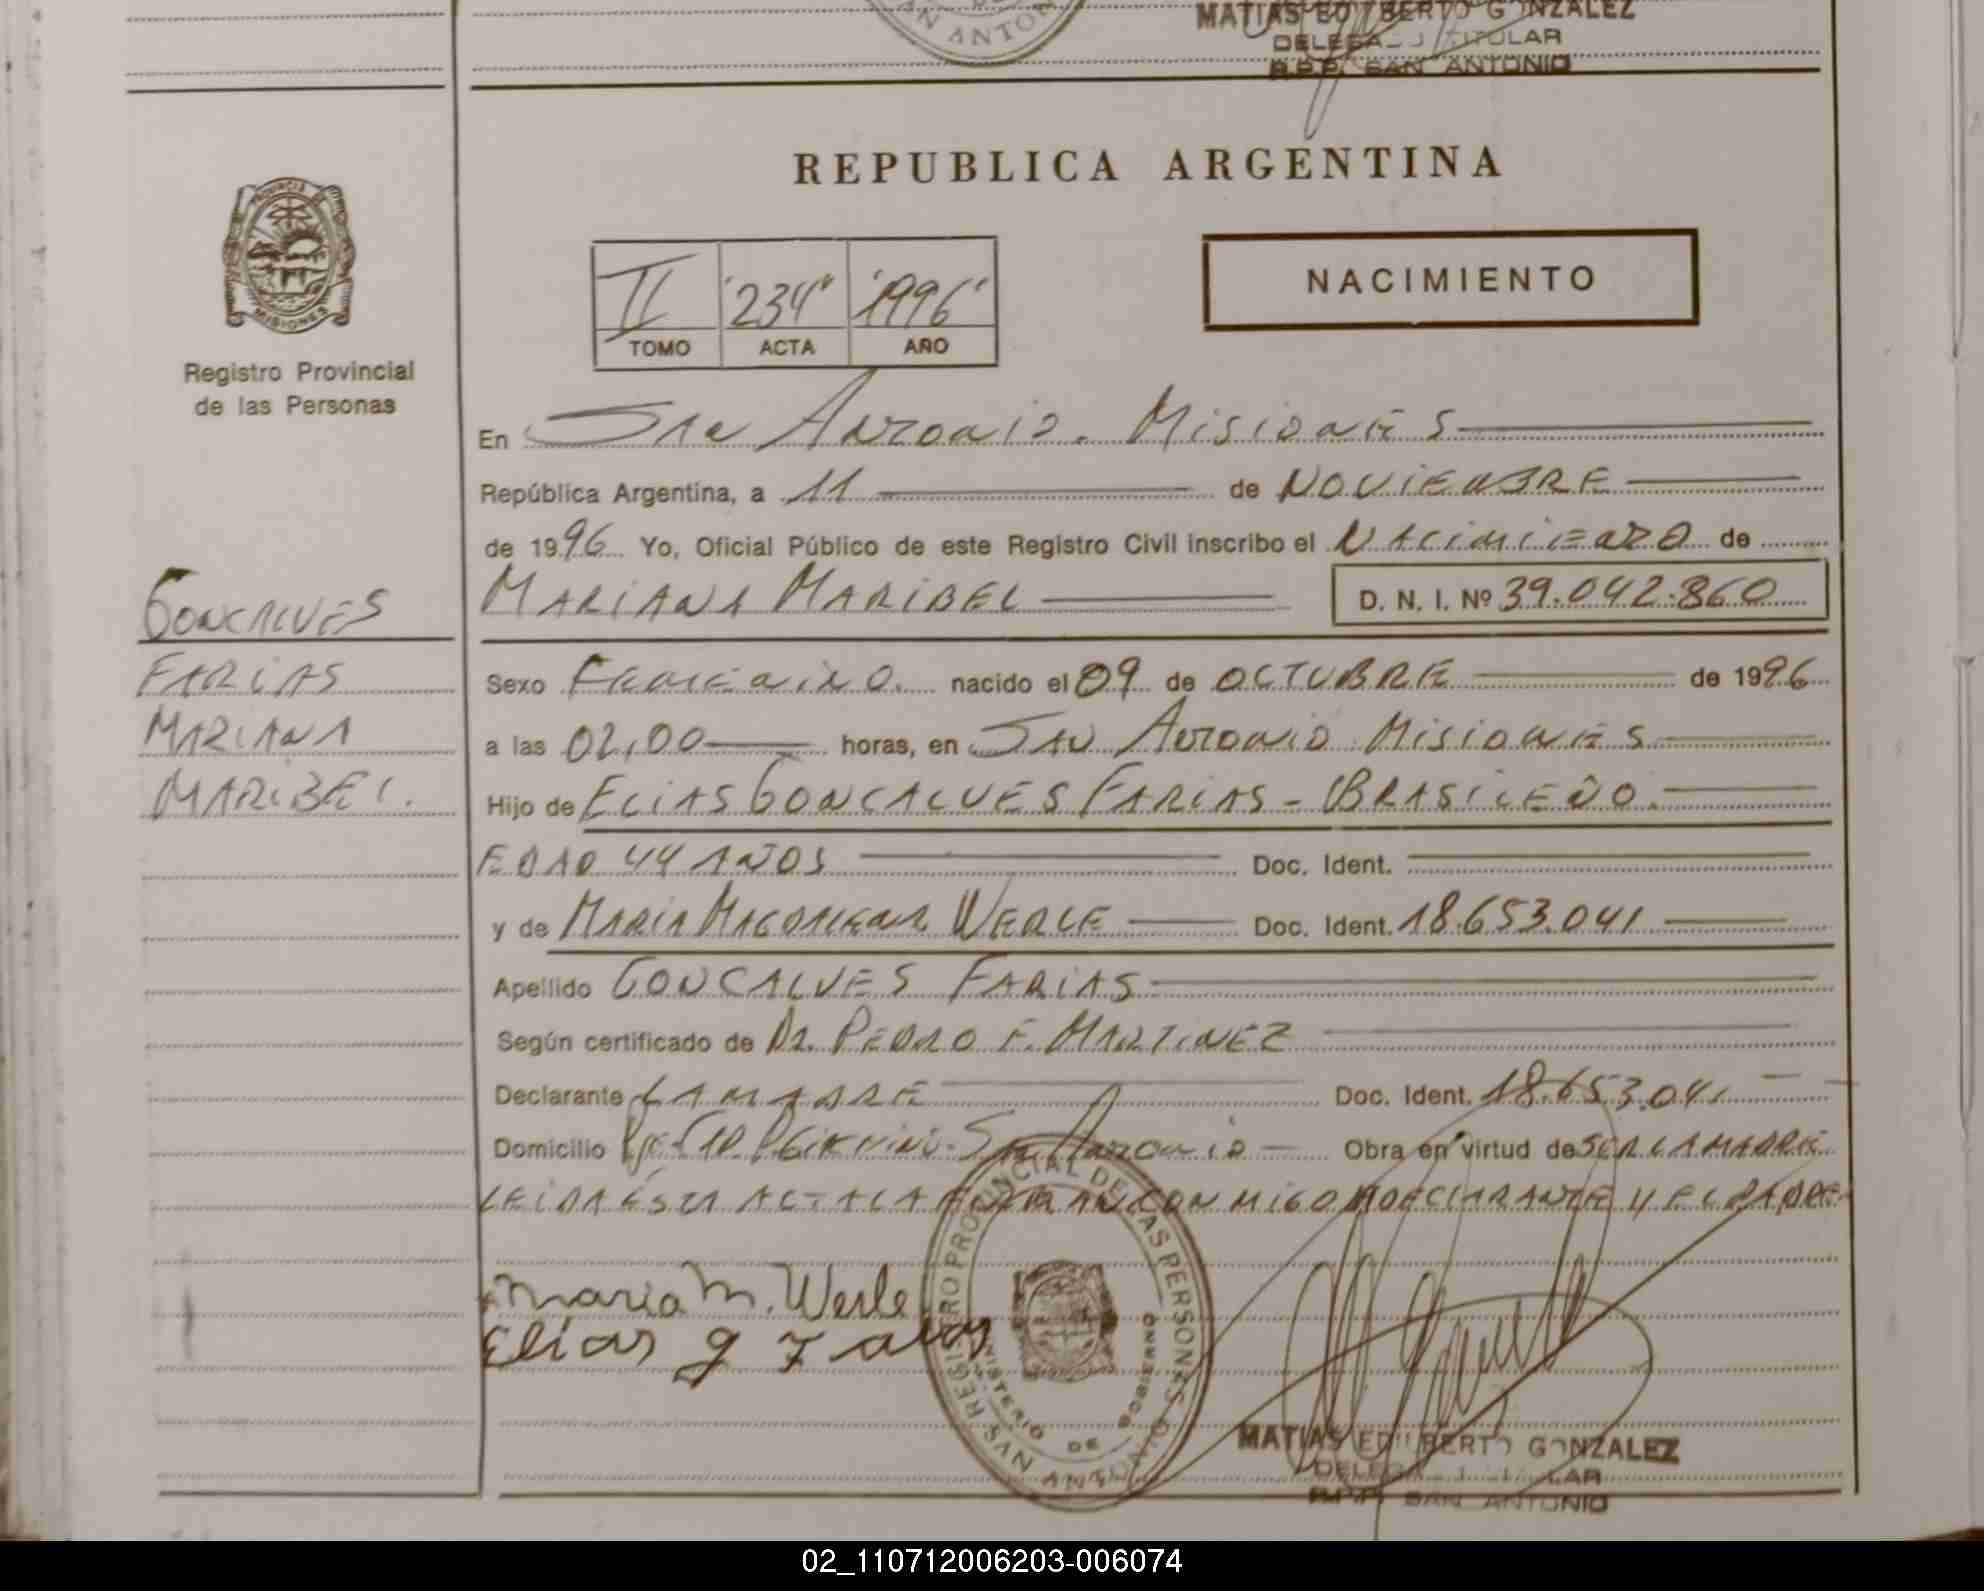 SAN ANTONIO
MATIAS EDILBERTO GONZALEZ
DELEGADO TITULAR
R.P.P. SAN ANTONIO
PROVINCIA DE
MISIONES
Registro Provincial
de las Personas
REPUBLICA ARGENTINA
II "234" "1996"
TOMO ACTA AÑO
NACIMIENTO
En San Antonio. Misiones
República Argentina, a 11 de NOVIEMBRE
de 1996 Yo, Oficial Público de este Registro Civil inscribo el Nacimiento de
MARIANA MARIBEL D. N. I. Nº 39.042.860
GONCALVES
FARIAS
MARIANA
MARIBEL.
Sexo Femenino. nacido el 09 de OCTUBRE de 1996
a las 02,00 horas, en San Antonio Misiones
Hijo de ELIAS GONCALVES FARIAS - BRASILEÑO.
EDAD 44 AÑOS Doc. Ident.
y de MARIA MAGDALENA WERLE Doc. Ident. 18.653.041
Apellido GONCALVES FARIAS
Según certificado de Dr. PEDRO F. MARTINEZ
Declarante LA MADRE Doc. Ident. 18.653.041
Domicilio San Antonio Obra en virtud de SER LA MADRE
LEIDA ESTA ACTA LA FIRMAN CONMIGO LA DECLARANTE Y EL PADRE
Maria M. Werle
Elias g Farias
REGISTRO PROVINCIAL DE LAS PERSONAS
MINISTERIO DE GOBIERNO
SAN ANTONIO
MATIAS EDILBERTO GONZALEZ
DELEGADO TITULAR
R.P.P. SAN ANTONIO
02_110712006203-006074